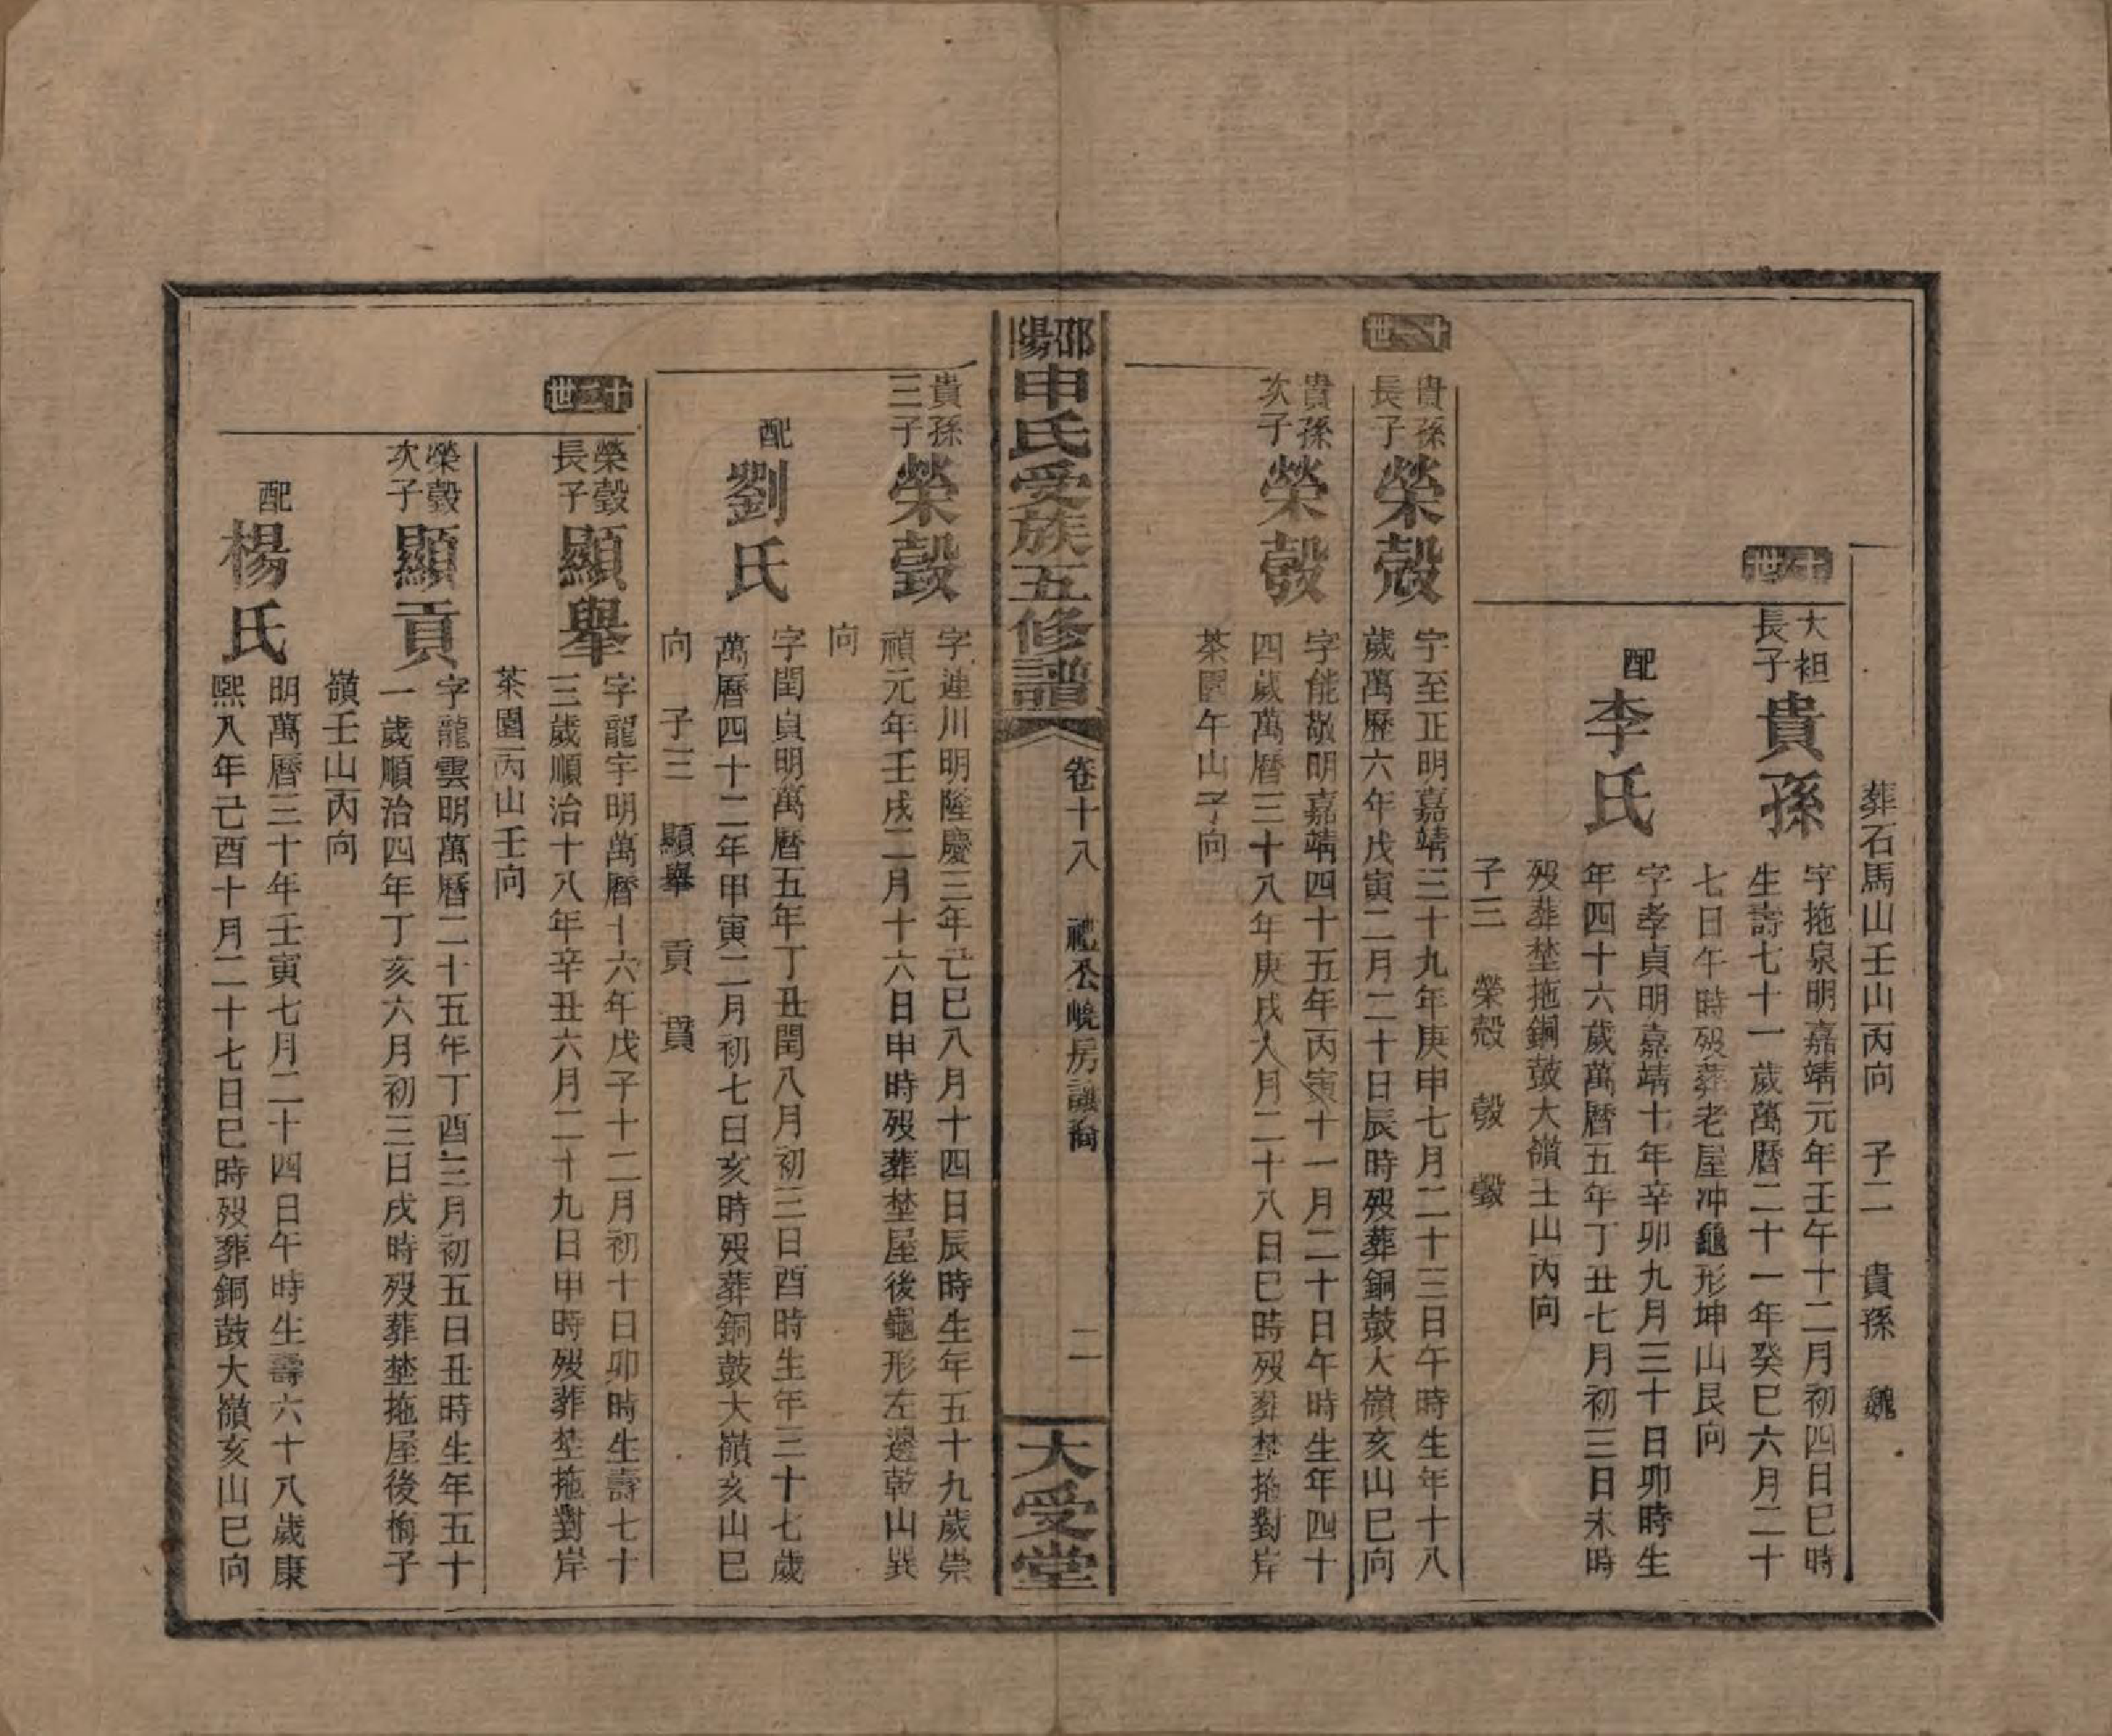 葬石馬山壬山丙向　子二　貴孫　魏
十世
大祖
長子
貴孫
字拖泉明嘉靖元年壬午十二月初四日巳時
生壽七十一歲萬曆二十一年癸巳六月二十
七日午時歿葬老屋冲龜形坤山艮向
配
李氏
字孝貞明嘉靖十年辛卯九月三十日卯時生
年四十六歲萬曆五年丁丑七月初三日未時
歿葬埜拖銅鼓大嶺壬山丙向
子三　榮殼　㲄　㲉
十一世
貴孫
長子
榮殼
字至正明嘉靖三十九年庚申七月二十三日午時生年十八
歲萬歷六年戊寅二月二十日辰時歿葬銅鼓大嶺亥山巳向
貴孫
次子
榮㲄
字能敬明嘉靖四十五年丙寅十一月二十日午時生年四十
四歲萬曆三十八年庚戌八月二十八日巳時歿葬埜拖對岸
茶園午山子向
邵陽
申氏受族五修譜
卷十八　禮公嶢房議裔
二
大受堂
貴孫
三子
榮㲉
字連川明隆慶三年己巳八月十四日辰時生年五十九歲崇
禎元年壬戌二月十六日申時歿葬埜屋後龜形左邊乾山巽
向
配
劉氏
字閏貞明萬曆五年丁丑閏八月初三日酉時生年三十七歲
萬曆四十二年甲寅二月初七日亥時歿葬銅鼓大嶺亥山巳
向　子三　顯舉　貢　貫
十二世
榮㲉
長子
顯舉
字龍宇明萬曆十六年戊子十二月初十日卯時生壽七十
三歲順治十八年辛丑六月二十九日申時歿葬埜拖對岸
茶園丙山壬向
榮㲉
次子
顯貢
字龍雲明萬曆二十五年丁酉三月初五日丑時生年五十
一歲順治四年丁亥六月初三日戌時歿葬埜拖屋後梅子
嶺壬山丙向
配
楊氏
明萬曆三十年壬寅七月二十四日午時生壽六十八歲康
熙八年己酉十月二十七日巳時歿葬銅鼓大嶺亥山巳向